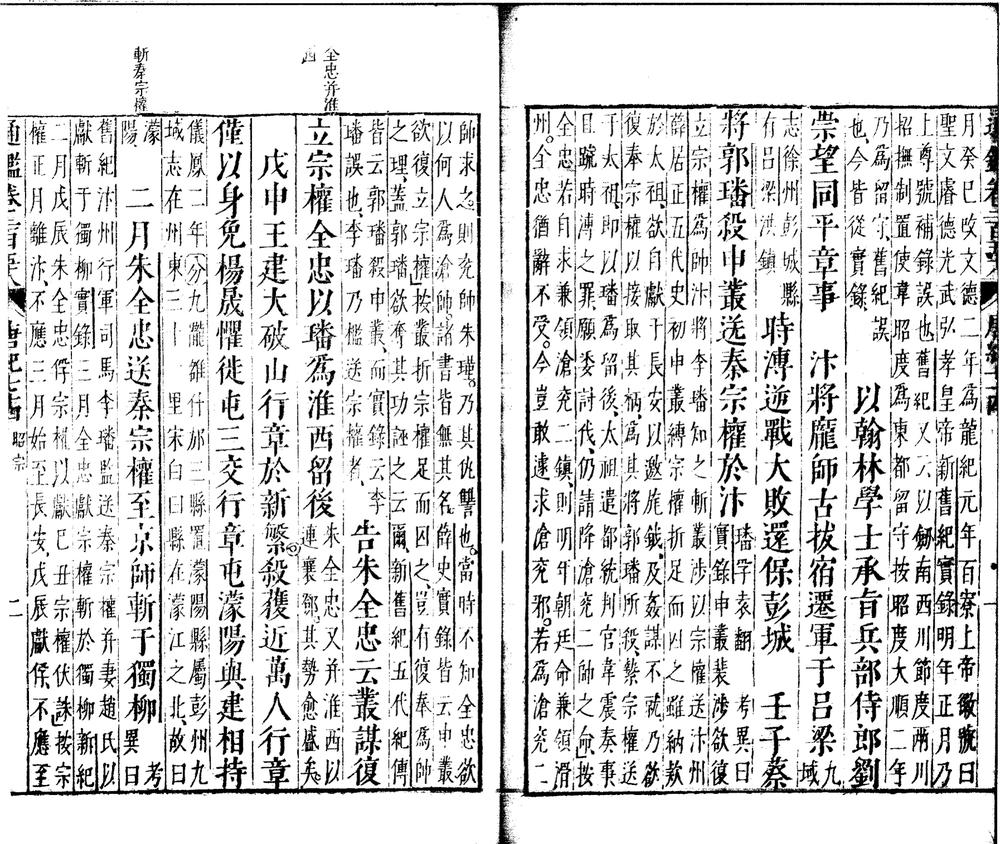 通鑑卷二百五十八 唐紀七十四
月癸巳改文德二年爲龍紀元年百寮上帝徽號曰
聖文睿德光武弘孝皇帝新舊紀實錄明年正月乃
上尊號補錄誤也舊紀又云以劒南西川節度兩川
招撫制置使韋昭度爲東都留守按昭度大順二年
乃爲留守舊紀誤
也今皆從實錄
以翰林學士承旨兵部侍郎劉
崇望同平章事 汴將龐師古拔宿遷軍于呂梁九域
志徐州彭城縣
有呂梁洪鎮
時溥逆戰大敗還保彭城 壬子蔡
將郭璠殺申叢送秦宗權於汴
璠孚袁翻 考異曰
實錄申叢裴涉欲復
立宗權爲帥汴將李璠知之斬叢涉以宗權送汴州
薛居正五代史初申叢縛宗權折足而囚之雖納欵
於太祖欲自獻于長安以邀旄鉞及姦謀不就乃欲
復奉宗權以接取其柄爲其將郭璠所殺縶宗權送
于太祖即以璠爲留後太祖遣都統判官韋震奏事
且疏時溥之罪願委討伐仍請降滄兗二帥之命按
全忠若自求兼領滄兗二鎮則明年朝廷命兼領滑
州全忠猶辭不受今豈敢遽求滄兗邪若爲滄兗二
帥求之則兗帥朱瑾乃其仇讐也當時不知全忠欲
以何人爲滄帥諸書皆無其名薛史實錄皆云申叢
欲復立宗權按叢折宗權足而囚之豈有復奉爲帥
之理蓋郭璠欲奪其功誣之云爾新舊紀五代紀傳
皆云郭璠殺申叢而實錄云李
璠誤也李璠乃檻送宗權者
告朱全忠云叢謀復
全忠并淮
西
立宗權全忠以璠爲淮西留後
朱全忠又并淮西以
連襄鄧其勢愈盛矣
戊申王建大破山行章於新繁殺獲近萬人行章
僅以身免楊晟懼徙屯三交行章屯濛陽與建相持
儀鳳二年分九隴雒什邡三縣置濛陽縣屬彭州九
域志在州東三十里宋白曰縣在濛江之北故曰
濛
陽
斬秦宗權
二月朱全忠送秦宗權至京師斬于獨柳
考
異曰
舊紀汴州行軍司馬李璠監送秦宗權并妻趙氏以
獻斬于獨柳實錄三月全忠獻宗權斬於獨柳新紀
二月戊辰朱全忠俘宗權以獻己丑宗權伏誅按宗
權正月離汴不應三月始至長安戊辰獻俘不應至
通鑑卷二百五十八 唐紀七十四 昭宗 二